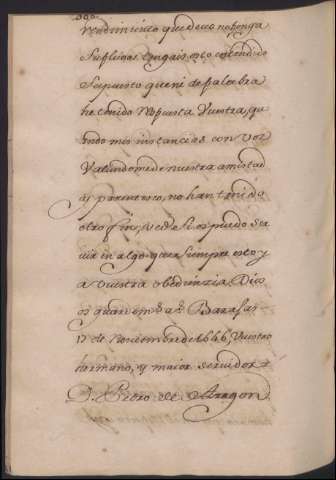 rendimiento que deve no tenga
Suplicoos tengais esto entendido
Supuesto que ni de palabra
he tenido Respuesta Vuestra, qu
ando mis instancias con vos
Valiendome de nuestra amistad
y parentesco, no han tenido
otro fin, ved si os puedo ser
vir en algo que siempre estoy
a Vuestra obediencia, Dios
os guarde ms. as. Barajas
17 de Noviembre de 1646, Vuestro
hermano, y maior servidor
D. Pedro de Aragon